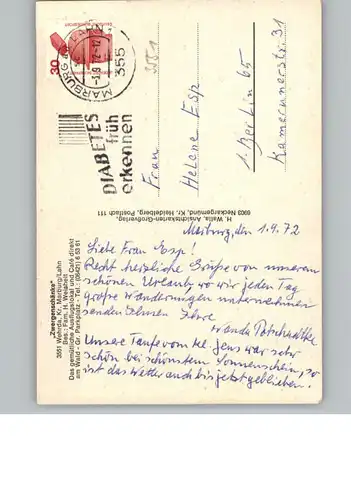 Marburg, den 1.9.72
Liebe Frau Esp!
Recht herzliche Grüße von unserem
schönen Urlaub, wo wir jeden Tag
große Wanderungen unternehmen
senden Ihnen Ihre
Unsere Taufe vom kl. Jens war sehr
schön bei schönstem Sonnenschein, so
ist das Wetter auch bis jetzt geblieben.
Frau
Helene Esp
1 Berlin 65
Kamerunerstr. 31
30
MARBURG
355
DIABETES
früh
erkennen
"Zwergenschänke"
3551 Wehrda, Kr. Marburg/Lahn
Bes.: Fam. H.
Das gemütliche Ausflugslokal und Café direkt
am Wald - Gr. Parkplatz - Tel.: (06421) 6 53 61
H. Walla, Ansichtskarten-Großverlag,
6903 Neckargemünd, Kr. Heidelberg, Postfach 111